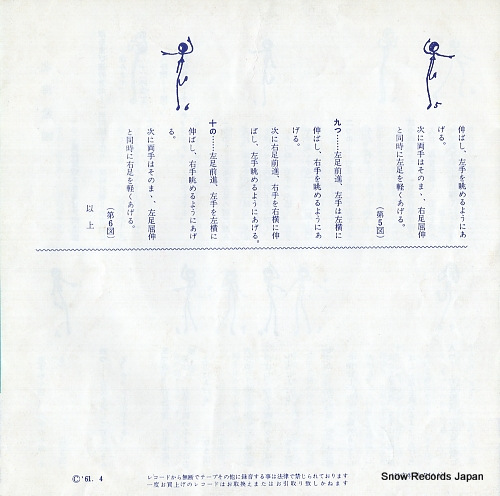 伸ばし、左手を眺めるようにあ
げる。
次に両手はそのまゝ、右足屈伸
と同時に左足を軽くあげる。
（第5図）
九つ……左足前進、左手は左横に
伸ばし、右手を眺めるようにあ
げる。
次に右足前進、右手を右横に伸
ばし、左手眺めるようにあげる。
十の……左足前進、左手を左横に
伸ばし、右手眺めるようにあげ
る。
次に両手はそのまゝ、左足屈伸
と同時に右足を軽くあげる。
（第6図）
以上
Ⓒ '61. 4
レコードから無断でテープその他に録音する事は法律で禁じられております
一度お買上げのレコードはお取換えまたはお引取り致しかねます
Snow Records Japan